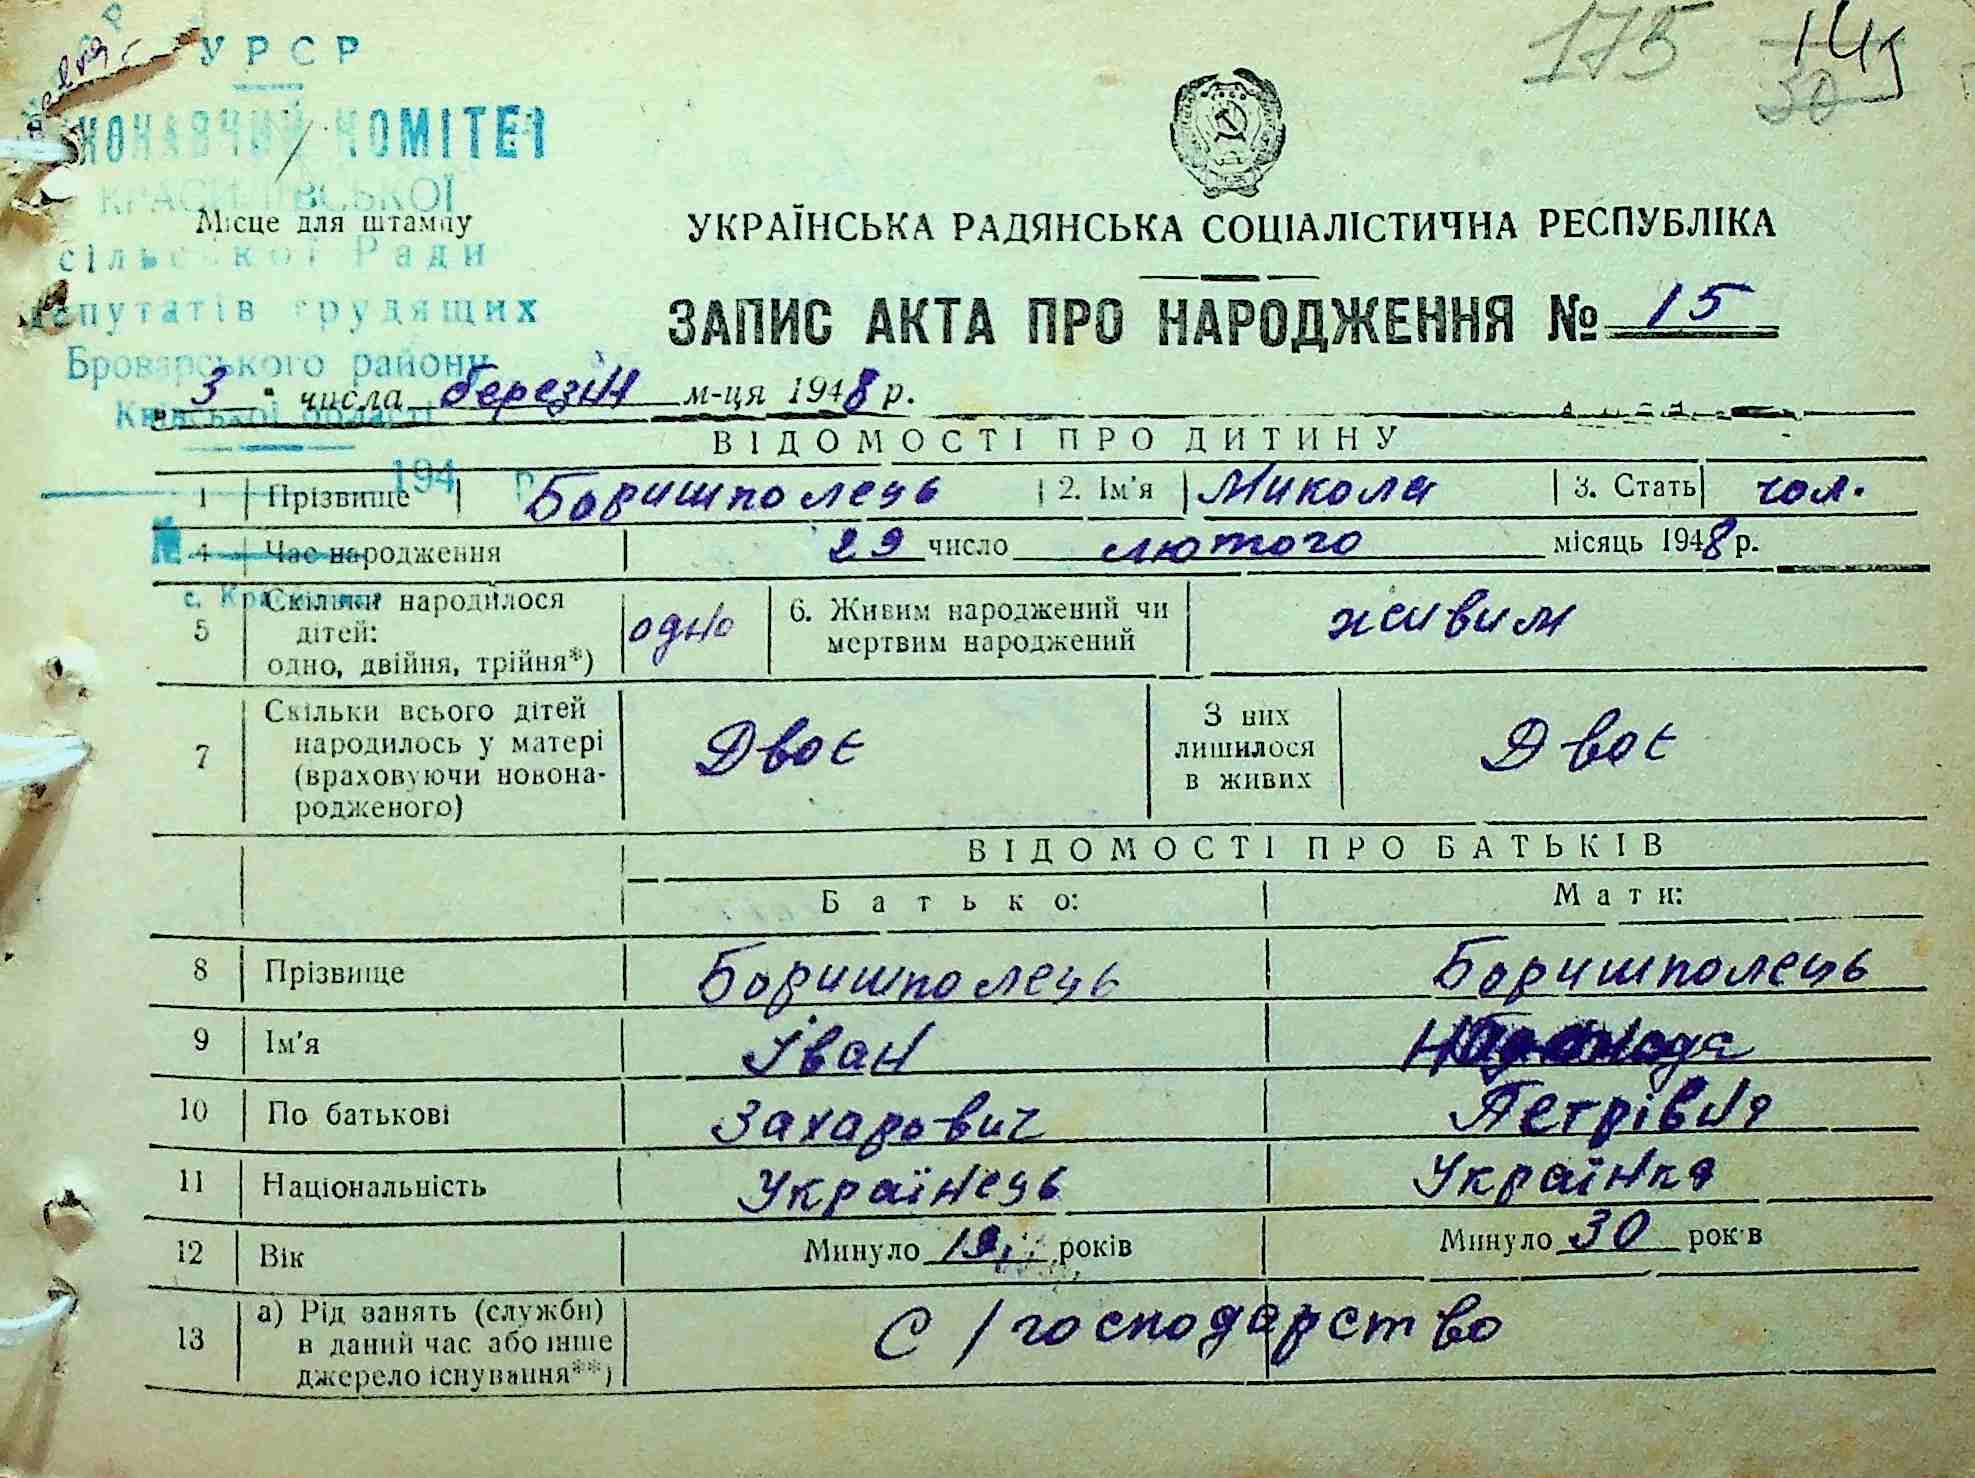 УРСР
175
КОНАВЧИЙ КОМІТЕТ
КРАСИЛІВСЬКОЇ
Місце для штампу
сільської Ради
депутатів трудящих
Броварського району
Київської області
194 р.
УКРАЇНСЬКА РАДЯНСЬКА СОЦІАЛІСТИЧНА РЕСПУБЛІКА
ЗАПИС АКТА ПРО НАРОДЖЕННЯ № 15
„3“ числа березня м-ця 1948 р.
ВІДОМОСТІ ПРО ДИТИНУ
1 Прізвище Боришполець 2. Ім'я Микола 3. Стать чол.
4 Час народження 29 число лютого місяць 1948 р.
5 Скільки народилося дітей: одно, двійня, трійня*) одно 6. Живим народжений чи мертвим народжений живим
7 Скільки всього дітей народилось у матері (враховуючи новонародженого) Двоє З них лишилося в живих Двоє
ВІДОМОСТІ ПРО БАТЬКІВ
Батько: Мати:
8 Прізвище Боришполець Боришполець
9 Ім'я Іван
10 По батькові Захарович Петрівна
11 Національність Українець Українка
12 Вік Минуло 19 років Минуло 30 років
13 а) Рід занять (служби) в даний час або інше джерело існування**) С/господарство